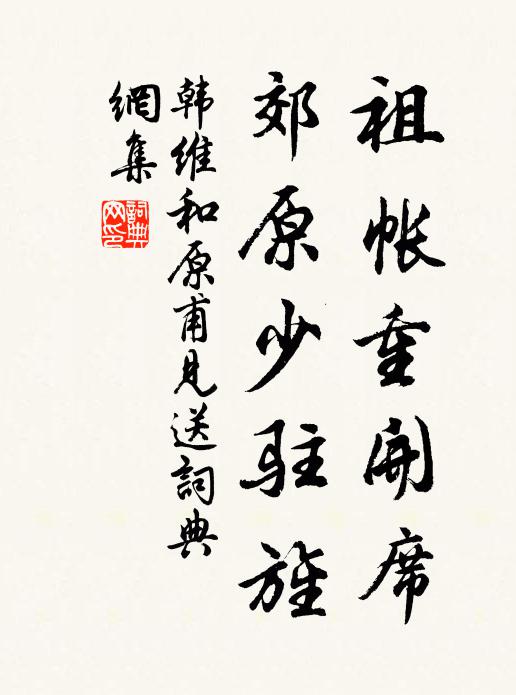 祖帐重开席
郊原少驻旌
韩维和原甫见送詞典
網集
詞典网印